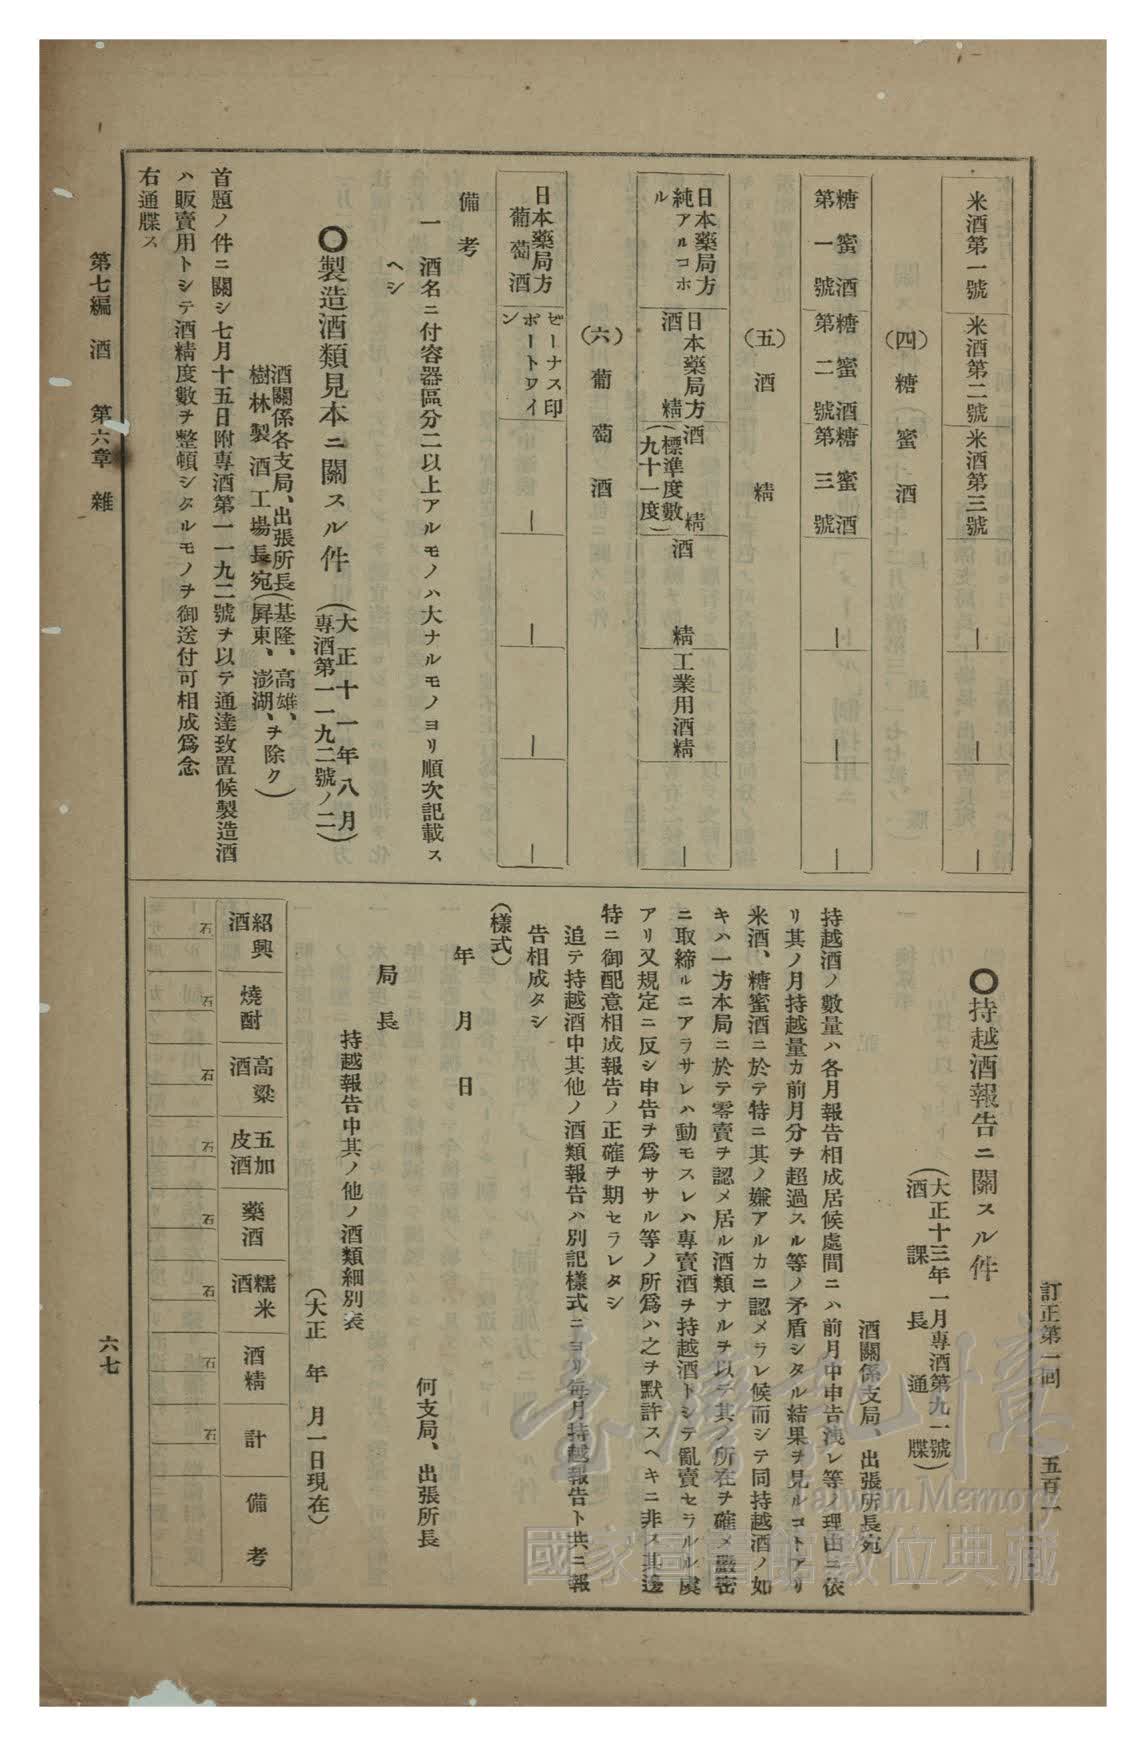 訂正第一回 五百一
米酒第一號 米酒第二號 米酒第三號 ー ー ー
(四)糖蜜酒
糖蜜酒第一號 糖蜜酒第二號 糖蜜酒第三號 ー ー ー
(五)酒精
日本藥局方純アルコホル 日本藥局方酒精 酒精(標準度數九十一度) 酒精 工業用酒精 ー
(六)葡萄酒
日本藥局方葡萄酒 ビーナス印ポートワイン ー ー ー ー
備考
一 酒名ニ付容器區分二以上アルモノハ大ナルモノヨリ順次記載ス
ヘシ
〇製造酒類見本ニ關スル件 (大正十一年八月專酒第一一九二號ノ二)
酒關係各支局、出張所長(基隆、高雄、
樹林製酒工場長宛(屛東、澎湖、ヲ除ク)
首題ノ件ニ關シ七月十五日附專酒第一一九二號ヲ以テ通達致置候製造酒
ハ販賣用トシテ酒精度數ヲ整頓シタルモノヲ御送付可相成爲念
右通牒ス
〇持越酒報告ニ關スル件 (大正十三年一月專酒第九一號酒課長通牒)
酒關係支局、出張所長宛
持越酒ノ數量ハ各月報告相成居候處間ニハ前月中申告洩レ等ノ理由ニ依
リ其ノ月持越量カ前月分ヲ超過スル等ノ矛盾シタル結果ヲ見ルコトアリ
米酒、糖蜜酒ニ於テ特ニ其ノ嫌アルカニ認メラレ候而シテ同持越酒ノ如
キハ一方本局ニ於テ零賣ヲ認メ居ル酒類ナルヲ以テ其ノ所在ヲ確メ嚴密
ニ取締ルニアラサレハ動モスレハ專賣酒ヲ持越酒トシテ亂賣セラルル虞
アリ又規定ニ反シ申告ヲ爲ササル等ノ所爲ハ之ヲ默許スヘキニ非ス其邊
特ニ御配意相成報告ノ正確ヲ期セラレタシ
追テ持越酒中其他ノ酒類報告ハ別記樣式ニヨリ每月持越報告ト共ニ報
告相成タシ
(樣式)
年 月 日
何支局、出張所長
局長
持越報告中其ノ他ノ酒類細別表
(大正 年 月一日現在)
紹興酒 燒酎 高粱酒 五加皮酒 藥酒 糯米酒 酒精 計 備考
石 石 石 石 石 石 石 石
第七編 酒 第六章 雜
六七
臺灣記憶
Taiwan Memory
國家圖書館數位典藏